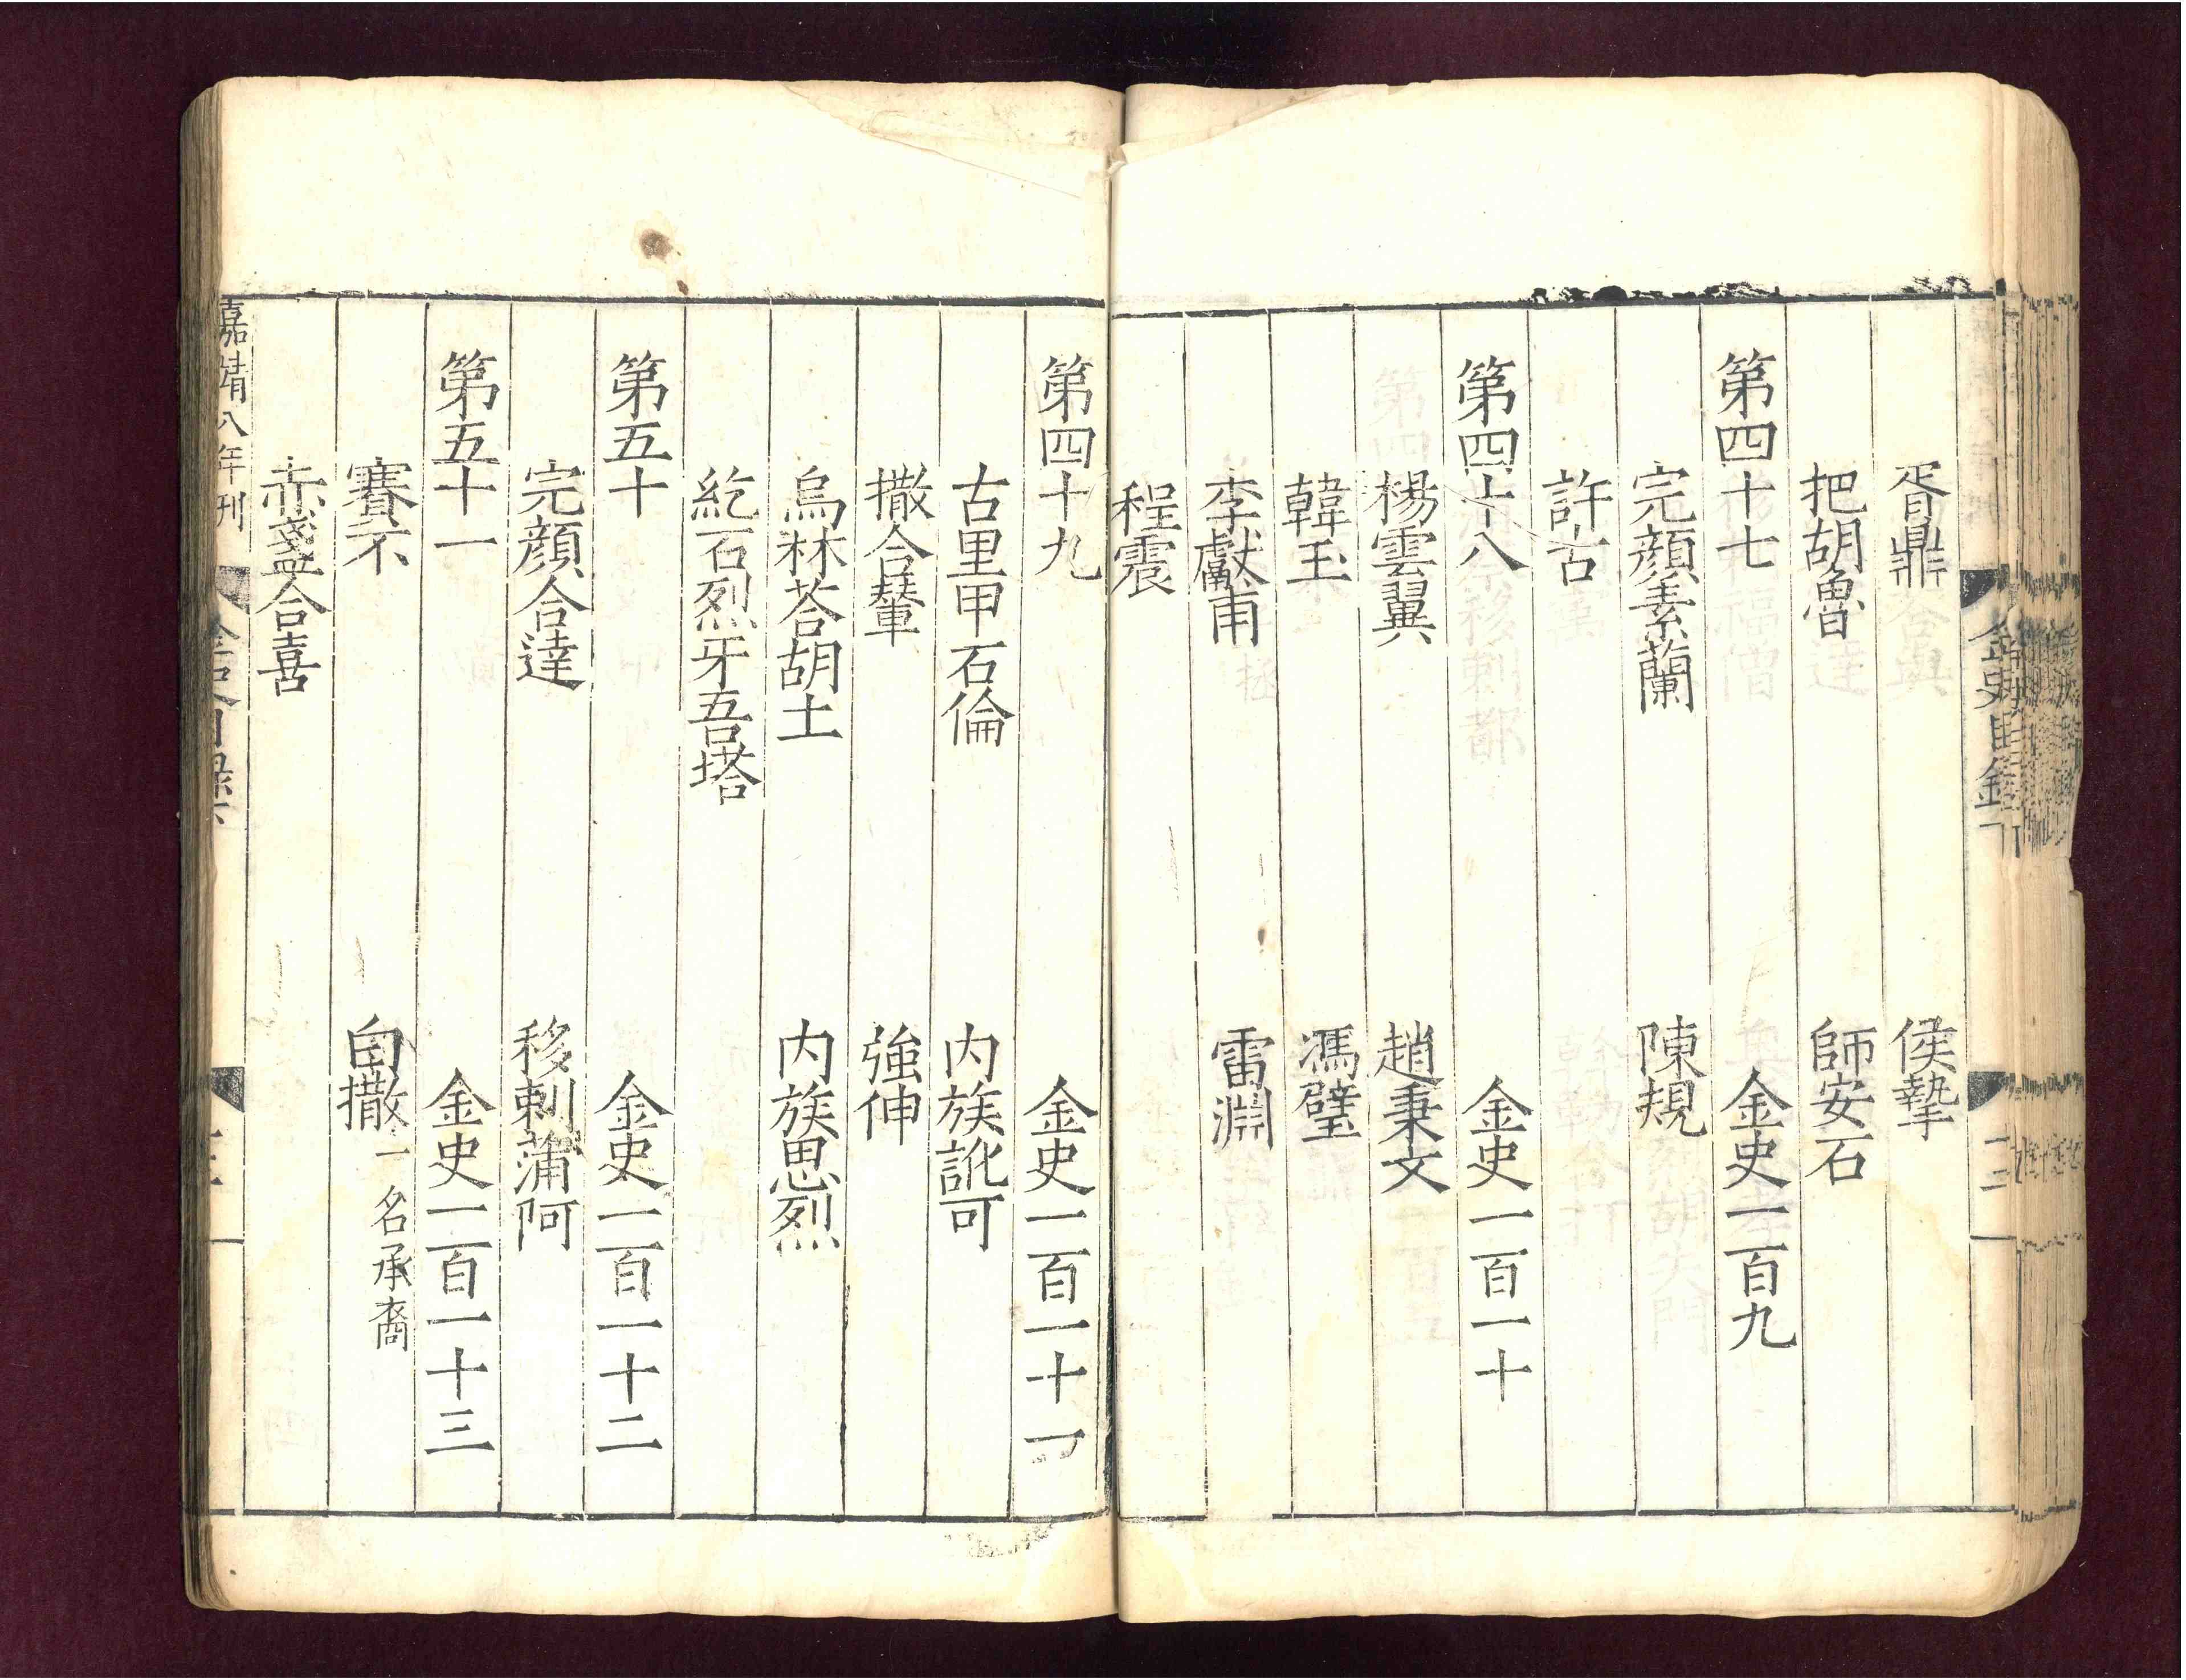 胥鼎 侯摯
把胡魯 師安石
第四十七 金史一百九
完顏素蘭 陳規
許古
第四十八 金史一百一十
楊雲翼 趙秉文
韓玉 馮璧
李獻甫 雷淵
程震
第四十九 金史一百一十一
古里甲石倫 内族訛可
撒合輦 強伸
烏林荅胡土 内族思烈
紇石烈牙吾塔
第五十 金史一百一十二
完顏合達 移剌蒲阿
第五十一 金史一百一十三
賽不 白撒一名承裔
赤盞合喜
嘉靖八年刊 金史目錄下